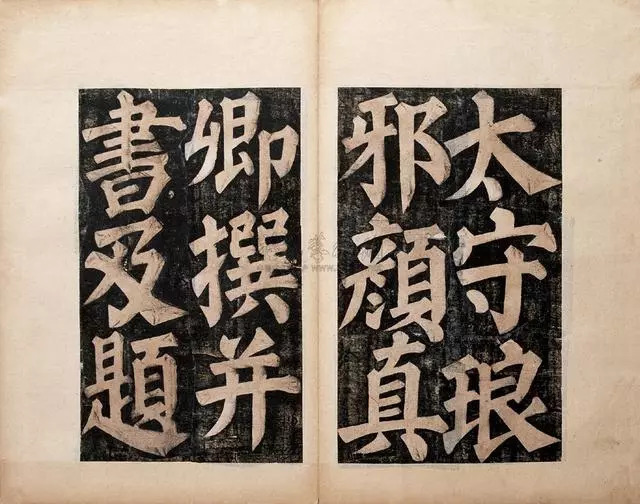 太守琅
邪顏真
卿撰并
書及題